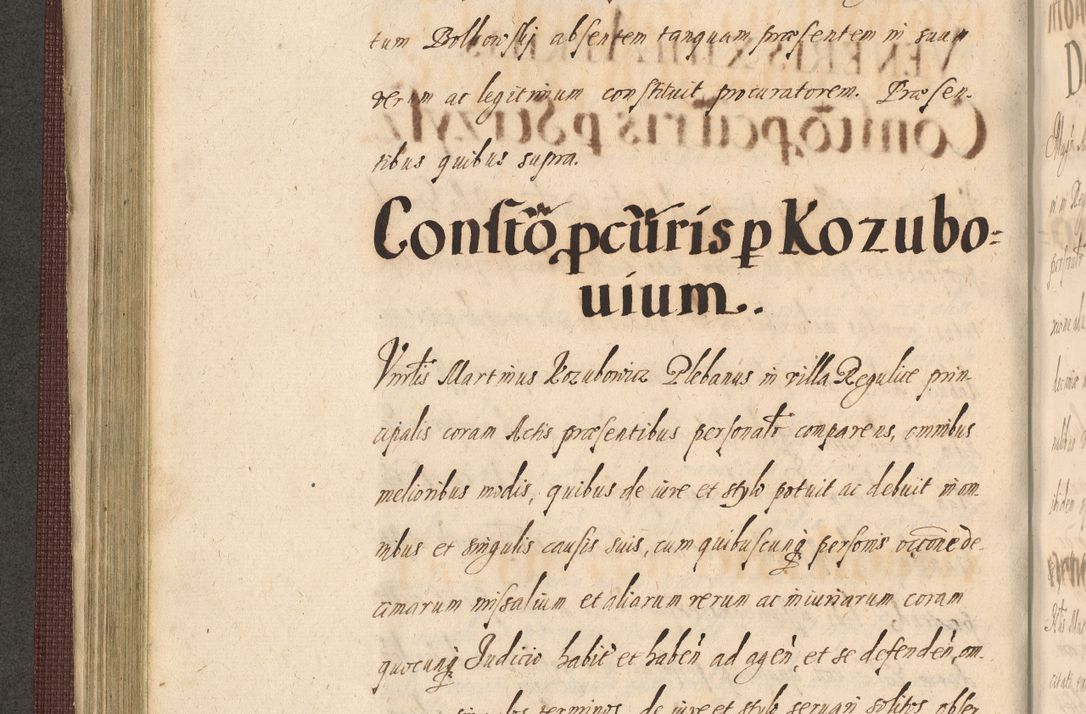 tum Bolkowskj absentem tanquam præsentem in suum
verum ac legitimum constituit procuratorem. Præsen-
tibus quibus supra.
Constõ pcũris p Kozubo=
uium.
Martinus Kozubowicz Plebanus in villa Regulice prin-
cipalis coram Actis præsentibus personalr comparens, omnibus
melioribus modis, quibus de iure et stylo potuit ac debuit in om-
nibus et singulis causis suis, cum quibuscunq personis rõne de-
cimarum missalium et aliarum rerum ac iniuriarum coram
quocunq Judicio habit et haben ad agen, et se defenden, om-
singulos terminos de iure et stylo seruari solitos obser